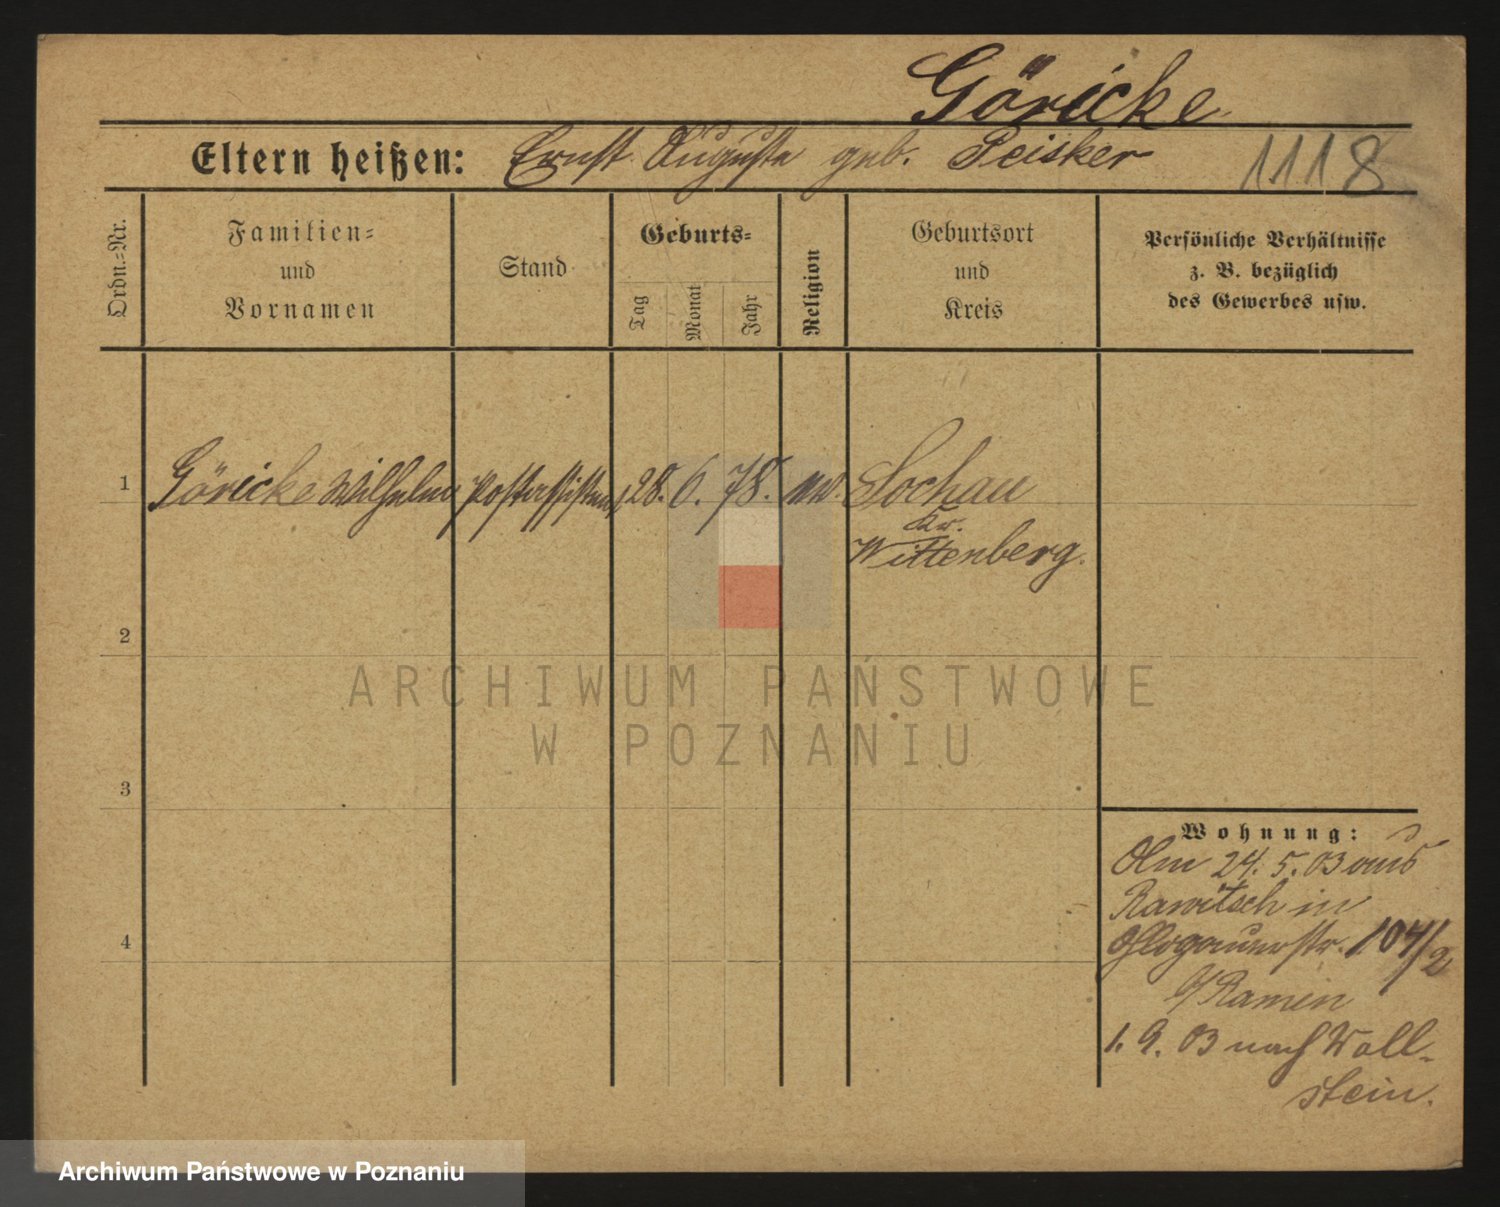 Göricke
Eltern heißen: Ernst Auguste geb. Peisker
1118
Ordn.-Nr.
Familien-
und
Vornamen
Stand
Geburts-
Tag
Monat
Jahr
Religion
Geburtsort
und
Kreis
Persönliche Verhältnisse
z. B. bezüglich
des Gewerbes usw.
1 Göricke Wilhelm Postassistent 28. 6. 78. Gochau
Kr.
Wittenberg.
2
3
4
Wohnung:
Am 24. 5. 03 aus
Rawitsch in
Glogauerstr. 104/2
b/Ramin
1. 9. 03 nach Woll-
stein.
ARCHIWUM PAŃSTWOWE
W POZNANIU
Archiwum Państwowe w Poznaniu